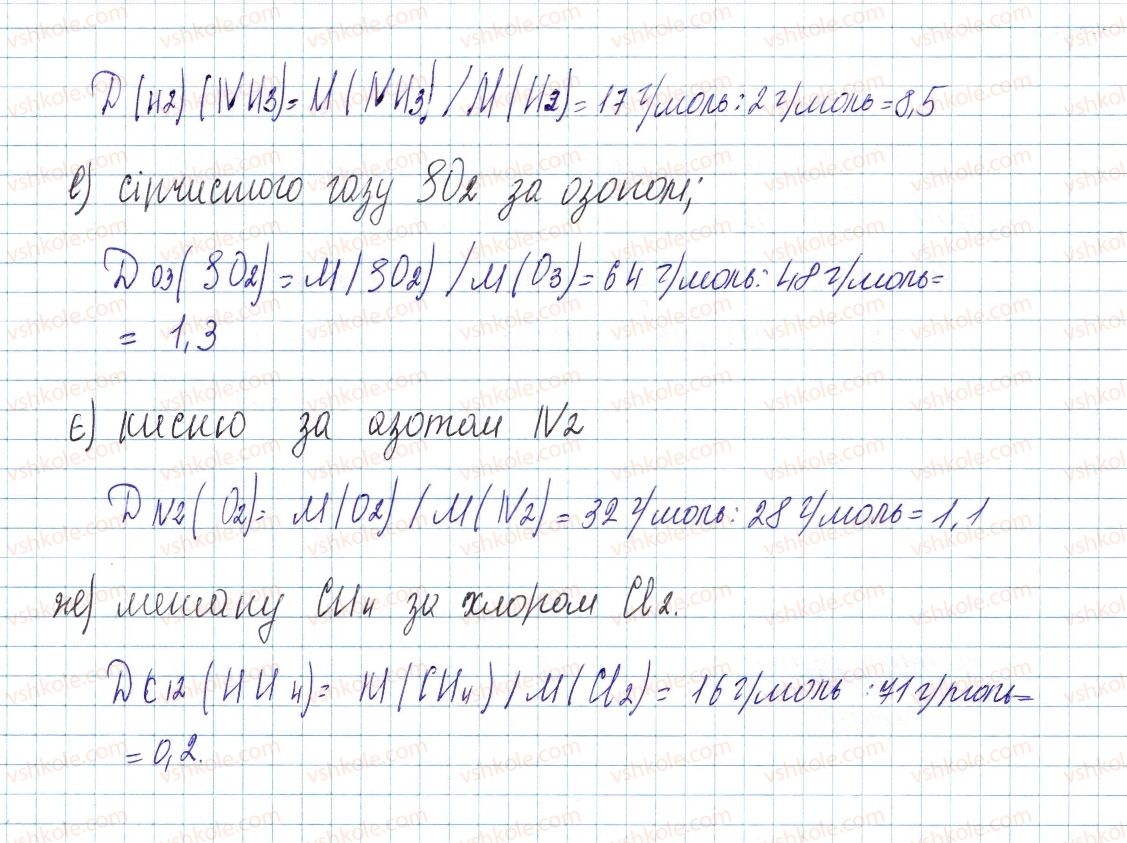 D (H2) (NH3) = M (NH3) / M (H2) = 17 г/моль : 2 г/моль = 8,5
е) сірчистого газу SO2 за озоном;
D O3 (SO2) = M (SO2) / M (O3) = 64 г/моль : 48 г/моль =
= 1,3
є) кисню за азотом N2
D N2 (O2) = M (O2) / M (N2) = 32 г/моль : 28 г/моль = 1,1
ж) метану CH4 за хлором Cl2.
D Cl2 (HH4) = M (CH4) / M (Cl2) = 16 г/моль : 71 г/моль =
= 0,2.